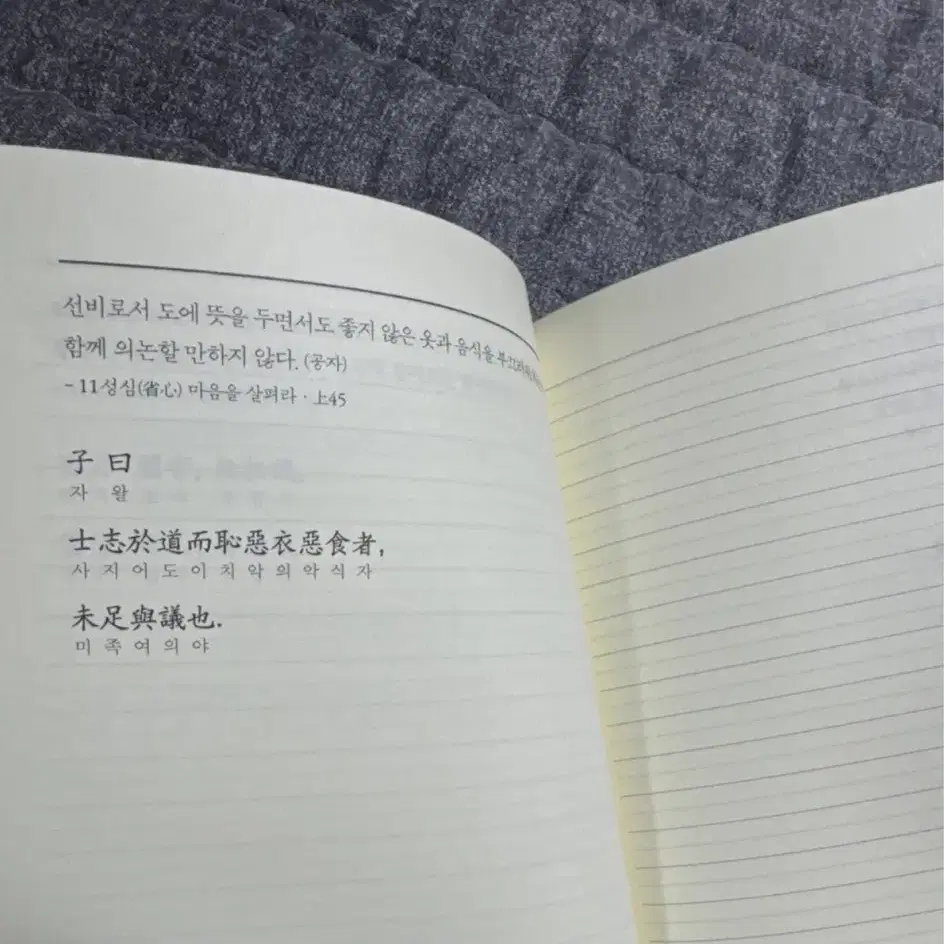 선비로서 도에 뜻을 두면서도 좋지 않은 옷과 음식을
함께 의논할 만하지 않다. (공자)
- 11성심(省心) 마음을 살펴라 · 上45
子曰
자왈
士志於道而恥惡衣惡食者,
사지어도이치악의악식자
未足與議也.
미족여의야